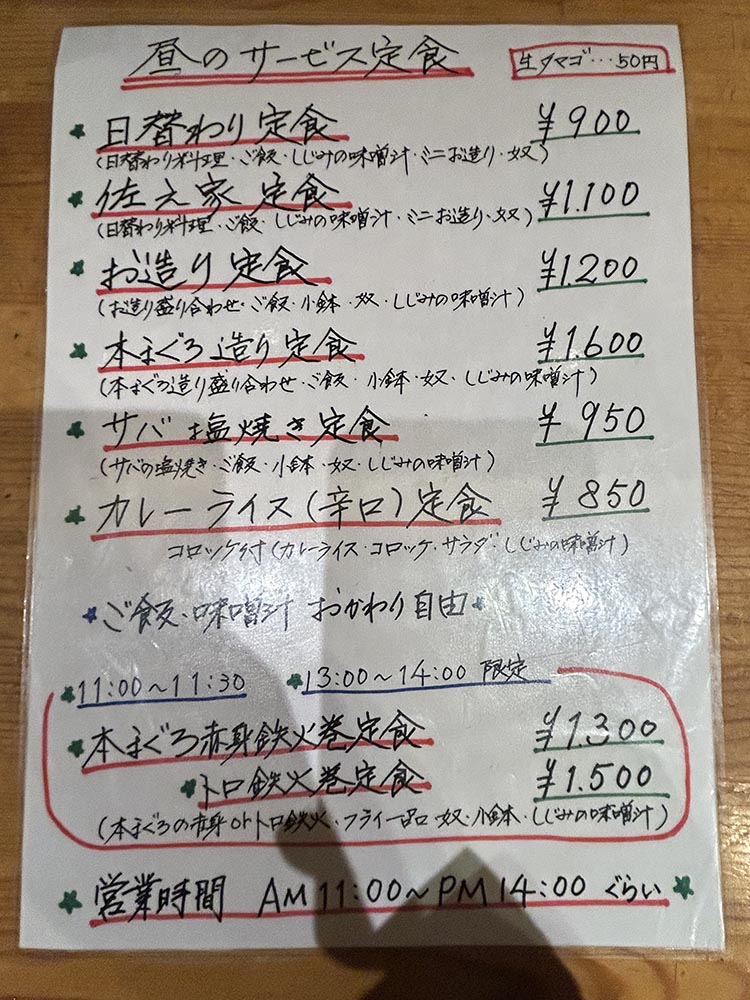 昼のサービス定食
生タマゴ…50円
日替わり定食 ¥900
(日替わり料理・ご飯・しじみの味噌汁・ミニお造り・奴)
佐え家定食 ¥1.100
(日替わり料理・ご飯・しじみの味噌汁・ミニお造り・奴)
お造り定食 ¥1.200
(お造り盛り合わせ・ご飯・小鉢・奴・しじみの味噌汁)
本まぐろ造り定食 ¥1.600
(本まぐろ造り盛り合わせ・ご飯・小鉢・奴・しじみの味噌汁)
サバ塩焼き定食 ¥950
(サバの塩焼き・ご飯・小鉢・奴・しじみの味噌汁)
カレーライス(辛口)定食 ¥850
コロッケ付(カレーライス・コロッケ・サラダ・しじみの味噌汁)
ご飯・味噌汁 おかわり自由
11:00〜11:30 13:00〜14:00 限定
本まぐろ赤身鉄火巻定食 ¥1.300
トロ鉄火巻定食 ¥1.500
(本まぐろの赤身orトロ鉄火・フライ一品・奴・小鉢・しじみの味噌汁)
営業時間 AM11:00〜PM14:00ぐらい